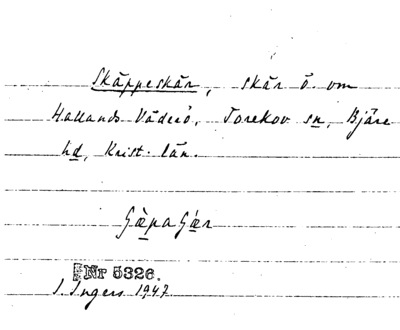 Skäppeskär, skär ö. om
Hallands Väderö, Torekov sn, Bjäre
hd, Krist. län.
Nr 5326.
I. Ingers 1947